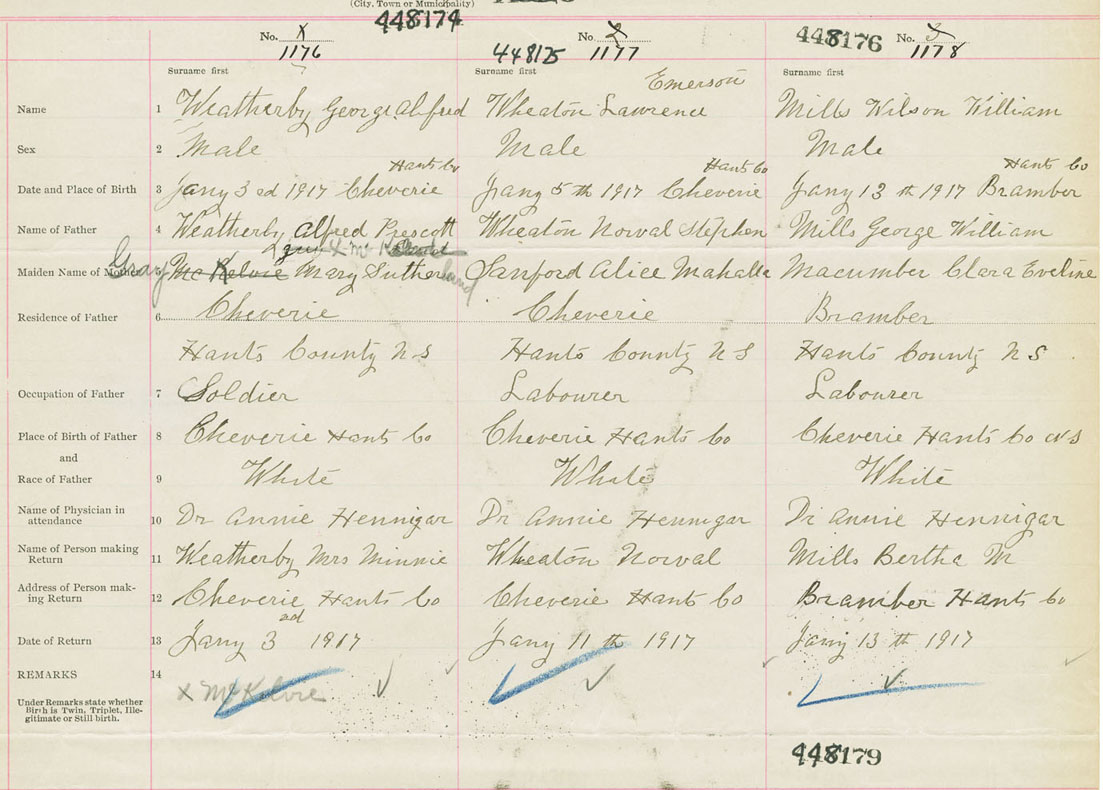 (City, Town or Municipality)
448174
No. 1 No. 2 448176 No. 3
1176 448175 1177 1178
Surname first Surname first Surname first
Emerson
Name 1 Weatherby George Alfred Wheaton Lawrence Mills Wilson William
Sex 2 Male Male Male
Hants Co Hants Co Hants Co
Date and Place of Birth 3 Jany 3rd 1917 Cheverie Jany 5th 1917 Cheverie Jany 13th 1917 Bramber
Name of Father 4 Weatherby Alfred Prescott Wheaton Nowal Stephen Mills George William
X Mc
Maiden Name of Mother Gray McKelvie Mary Sutherland Sanford Alice Mahalla Macumber Clara Eveline
Residence of Father 6 Cheverie Cheverie Bramber
Hants County N S Hants County N S Hants County N S
Occupation of Father 7 Soldier Labourer Labourer
Place of Birth of Father 8 Cheverie Hants Co Cheverie Hants Co Cheverie Hants Co N S
and
Race of Father 9 White White White
Name of Physician in
attendance 10 Dr Annie Hennigar Dr Annie Hennigar Dr Annie Hennigar
Name of Person making
Return 11 Weatherby Mrs Minnie Wheaton Nowal Mills Bertha M
Address of Person mak-
ing Return 12 Cheverie Hants Co Cheverie Hants Co Bramber Hants Co
Date of Return 13 Jany 3rd 1917 Jany 11th 1917 Jany 13th 1917
REMARKS 14
x McKelvie
Under Remarks state whether
Birth is Twin, Triplet, Ille-
gitimate or Still birth.
448179